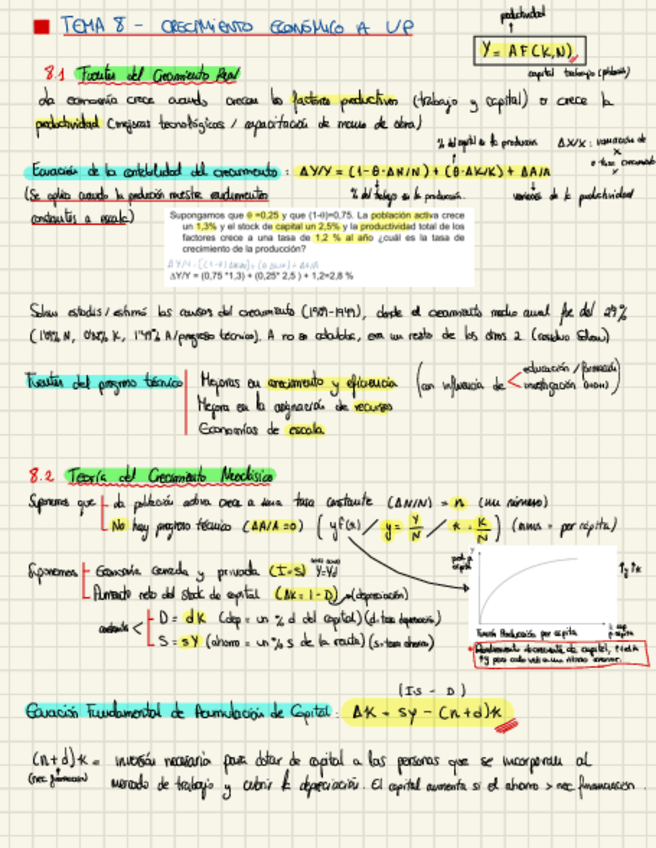 productividad
TEMA 8 - CRECIMIENTO ECONÓMICO A LP
Y = A F(K,N)
capital trabajo
8.1 Fuentes del Crecimiento Real
La economía crece cuando crecen los factores productivos (trabajo y capital) o crece la
productividad (mejoras tecnológicas / capacitación de mano de obra)
% del capital en la producción ΔX/X : variación de
x
Ecuación de la contabilidad del crecimiento : ΔY/Y = (1-θ·ΔN/N) + (θ·ΔK/K) + ΔA/A
(Se aplica cuando la producción muestre rendimientos
% del trabajo en la producción. variación de la productividad
constantes a escala)
Supongamos que θ =0,25 y que (1-θ)=0,75. La población activa crece
un 1,3% y el stock de capital un 2,5% y la productividad total de los
factores crece a una tasa de 1,2 % al año ¿cuál es la tasa de
crecimiento de la producción?
ΔY/Y = (0,75 *1,3) + (0,25* 2,5 ) + 1,2=2,8 %
Solow estudia / estima las causas del crecimiento (1909-1949), donde el crecimiento medio anual fue del
A no es, era un resto de los otros 2 (residuo Solow)
Fuentes del progreso técnico
Mejoras en crecimiento y eficiencia
(con influencia de
educación / formación
investigación
Mejora en la asignación de recursos
Economías de escala
8.2 Teoría del Crecimiento Neoclásico
Suponemos que
La población activa crece a una tasa constante (ΔN/N) = n (un número)
No hay progreso técnico (ΔA/A =0) [ y f(k) / y = Y/N / k = K/N ] (= per cápita)
Suponemos
Economía cerrada y privada (I=S) Y=Yd
Aumento neto del stock de capital (ΔK = I - D) (depreciación)
D = dK (dep = un % d del capital) (d: tasa depreciación)
S = sY (ahorro = un % s de la renta) (s: tasa ahorro)
Función Producción per cápita
Rendimiento decreciente de capital,
pero cada vez a un ritmo menor.
(I=S - D)
Ecuación Fundamental de Acumulación de Capital : Δk = sy - (n+d)k
(n+d)k = inversión necesaria para dotar de capital a las personas que se incorporan al
mercado de trabajo y cubrir la depreciación. El capital aumenta si el ahorro > nec financiación.
(nec financiación)